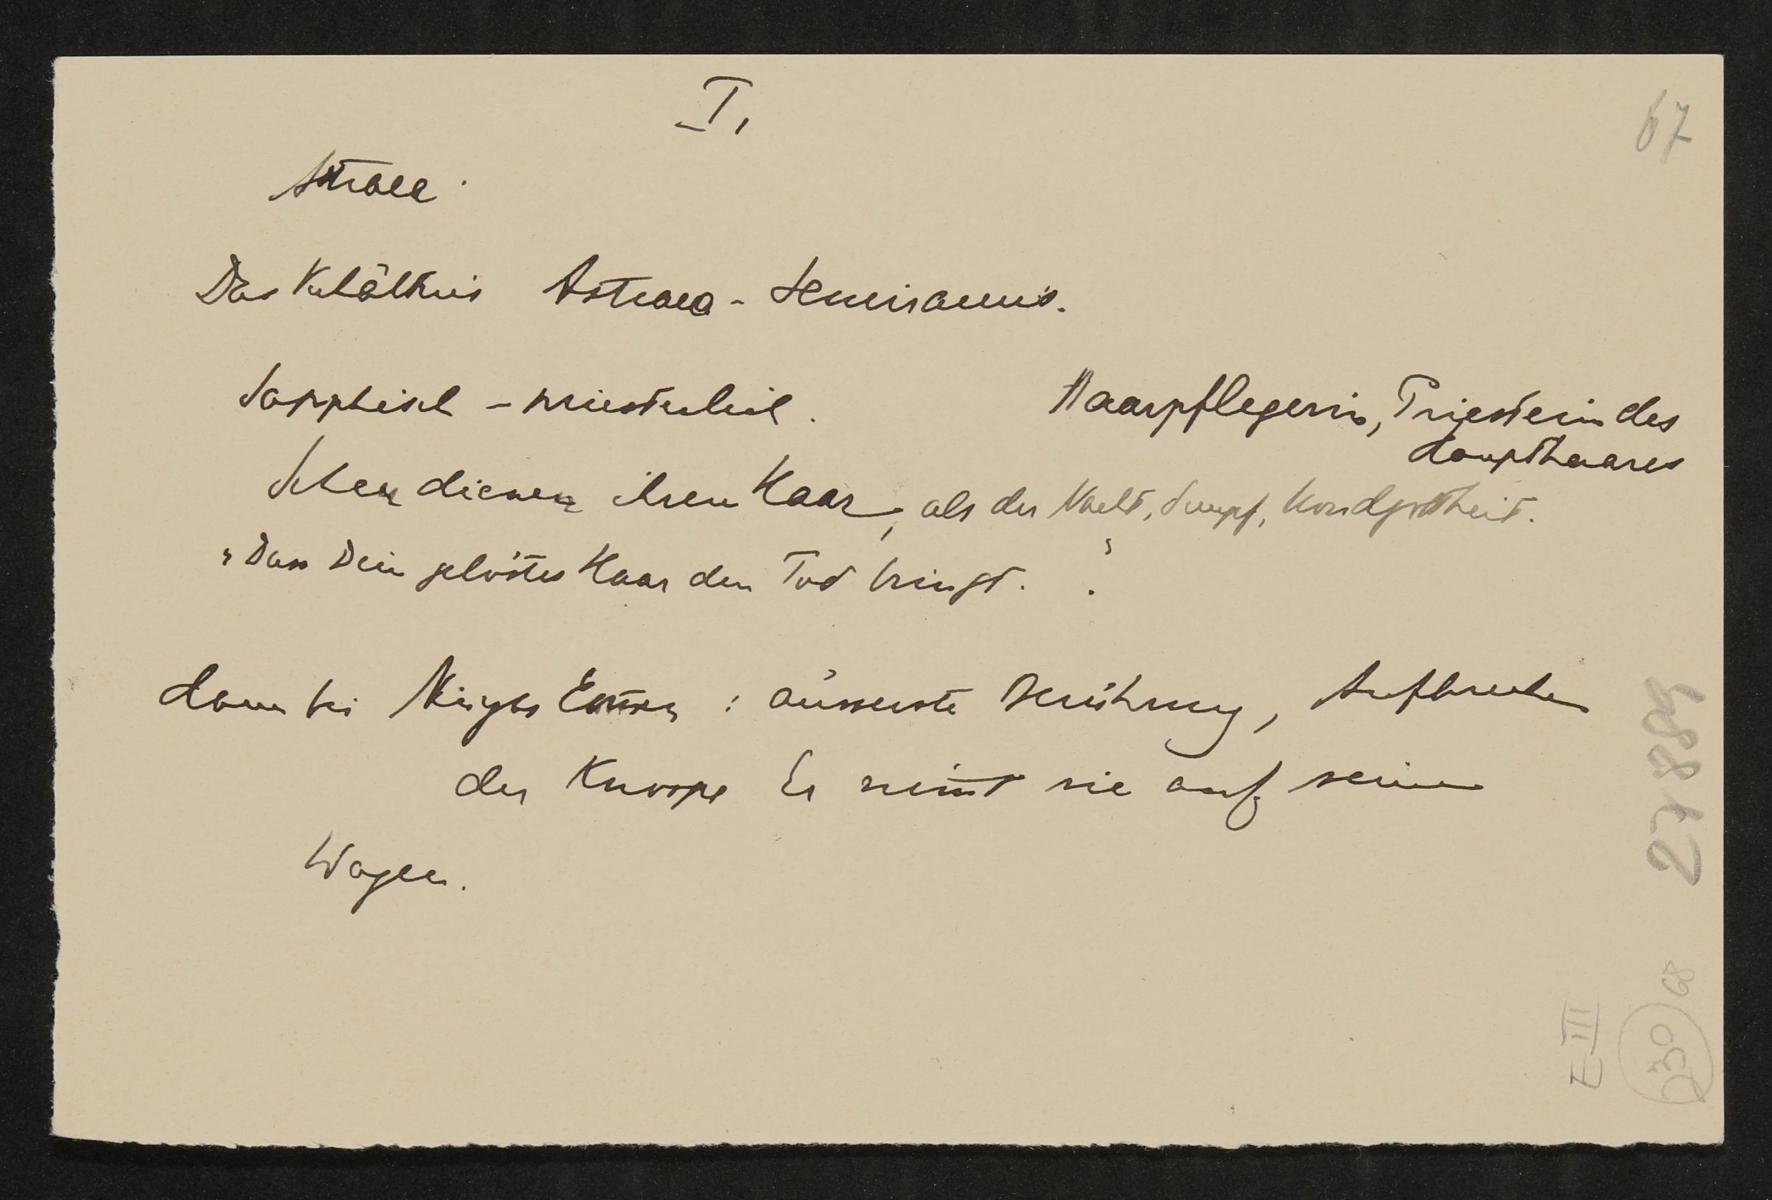 I,
67
Astraea.
Das Verhältnis Astraea - Semiramis.
Sapphisch - priesterlich.
Haarpflegerin, Priesterin des
Haupthaares
dienen ihrem Haar, als der Nacht, Sumpf, Mondgottheit.
"Dass Dein gelöstes Haar den Tod bringt."
dann bei : äusserste Berührung, Aufbrechen
der Knospe Er nimt sie auf seinen
Wagen.
27889
E III
230 68